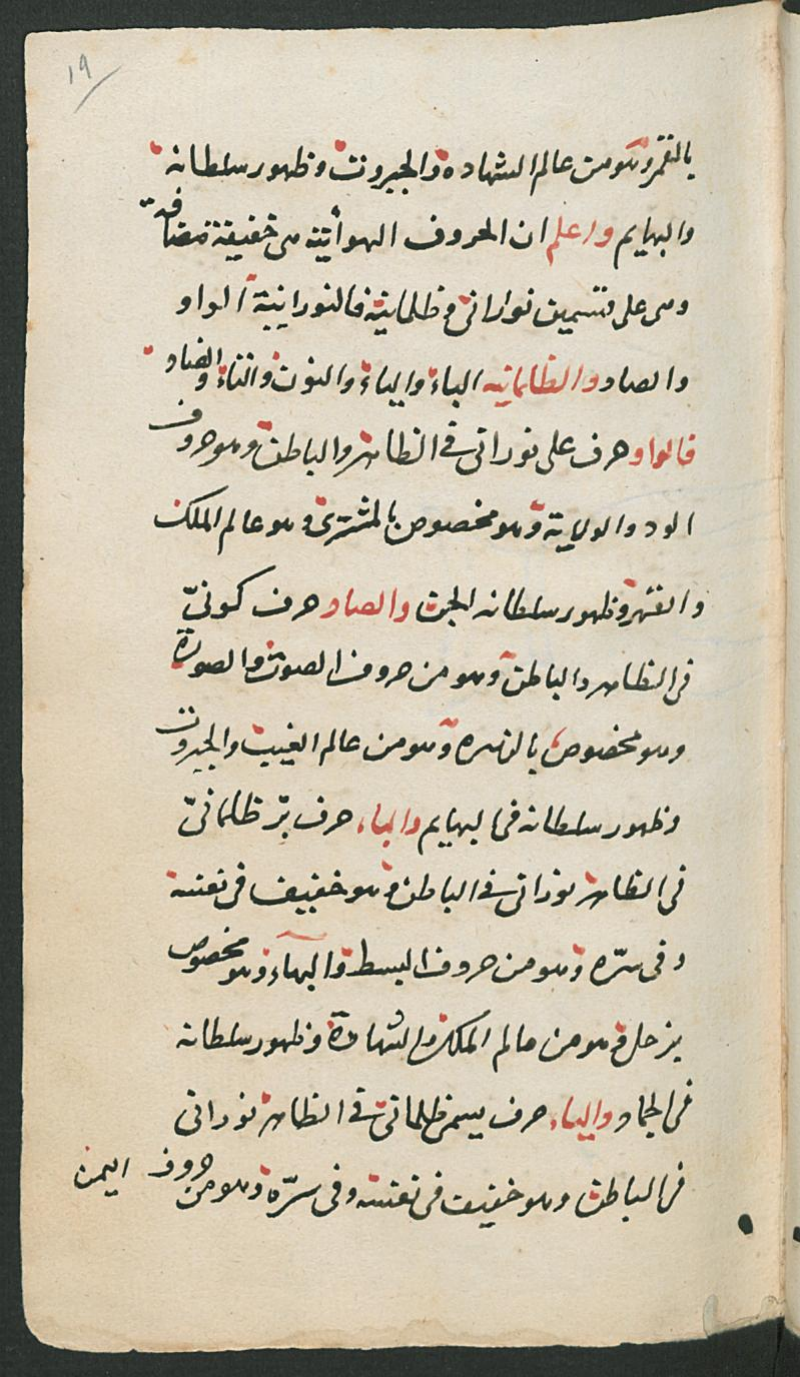 ١٩
بالقمر وهو من عالم الشهادة والجبروت وظهور سلطانه
والبهايم واعلم ان الحروف الهوائية هي خفيفة مضافة
وهي على قسمين نوراني وظلمانية فالنورانية الواو
والصاد والظلمانيه الباء والياء والنون والتاء والضاد
فالواو حرف على نوراني في الظاهر والباطن وهو حروف
الود والولاية وهو مخصوص بالمشترى وهو عالم الملك
والقهر وظهور سلطانه الجن والصاد حرف كونيّ
في الظاهر والباطن وهو من حروف الصوت والصورة
وهو مخصوص بالزهره وهو من عالم الغيب والجبروت
وظهور سلطانه في البهايم والباء حرف برّ ظلمانيّ
في الظاهر نوراني في الباطن وهو خفيف في نفسه
وفي سرّه وهو من حروف البسط والبهآء وهو مخصوص
بزحل وهو من عالم الملك والشهادة وظهور سلطانه
في الجماد والياء حرف يمن ظلماني في الظاهر نوراني
في الباطن وهو خفيف في نفسه وفي سرّه وهو من حروف اليمن